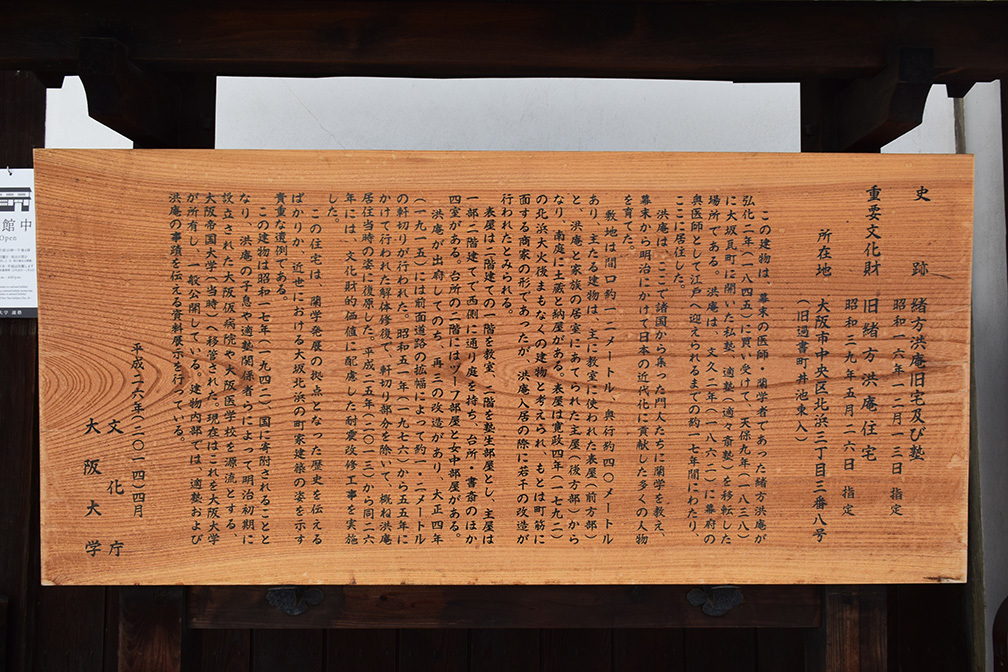 史跡 緒方洪庵旧宅及び塾
昭和一六年一二月一三日 指定
重要文化財 旧緒方洪庵住宅
昭和三九年五月二六日 指定
所在地 大阪市中央区北浜三丁目三番八号
(旧過書町井池東入)
この建物は、幕末の医師・蘭学者であった緒方洪庵が
弘化二年(一八四五)に買い受けて、天保九年(一八三八)
に大坂瓦町に開いた私塾、適塾(適々斎塾)を移転した
場所である。洪庵は、文久二年(一八六二)に幕府の
奥医師として江戸へ迎えられるまでの約一七年間にわたり、
ここに居住した。
洪庵は、ここで諸国から集った門人たちに蘭学を教え、
幕末から明治にかけて日本の近代化に貢献した多くの人物
を育てた。
敷地は間口約一二メートル、奥行約四〇メートル
あり、主たる建物は、主に教室に使われた表屋(前方部)
と、洪庵と家族の居室にあてられた主屋(後方部)から
なり、南庭に土蔵と納屋がある。表屋は寛政四年(一七九二)
の北浜大火後まもなくの建物と考えられ、もとは町筋に
面する商家の形であったが、洪庵入居の際に若干の改造が
行われたとみられる。
表屋は二階建ての一階を教室、二階を塾生部屋とし、主屋は
一部二階建てで西側に通り庭を持ち、台所・書斎のほか
四室がある。台所の二階にはヅーフ部屋と女中部屋がある。
洪庵が出府してのちも、再三の改造があり、大正四年
(一九一五)には前面道路の拡幅によって約一・二メートル
の軒切りが行われた。昭和五一年(一九七六)から五五年に
かけて行われた解体修復で、軒切り部分を除いて、概ね洪庵
居住当時の姿に復原した。平成二五年(二〇一三)から同二六
年には、文化財的価値に配慮した耐震改修工事を実施
した。
この住宅は、蘭学発展の拠点となった歴史を伝える
ばかりか、近世における大坂北浜の町家建築の姿を示す
貴重な遺例である。
この建物は昭和一七年(一九四二)国に寄附されることと
なり、洪庵の子息や適塾関係者らによって明治初期に
設立された大阪仮病院や大阪医学校を源流とする、
大阪帝国大学(当時)へ移管された。現在はこれを大阪大学
が所有し、一般公開している。建物内部では、適塾および
洪庵の事績を伝える資料展示を行っている。
平成二六年(二〇一四)四月
文化庁
大阪大学
館中
Open